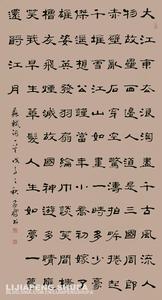 大江東去浪淘盡千古風流人
物故壘西邊人道是三國周郎
赤壁亂石穿空驚濤拍岸捲起
千堆雪江山如畫一時多少豪
傑遙想公瑾當年小喬初嫁了
雄姿英發羽扇綸巾談笑間檣
櫓灰飛煙滅故國神遊多情應
笑我早生華髮人生如夢一尊
還酹江月
蘇軾詞一首
LIJIAPENG SHUFA